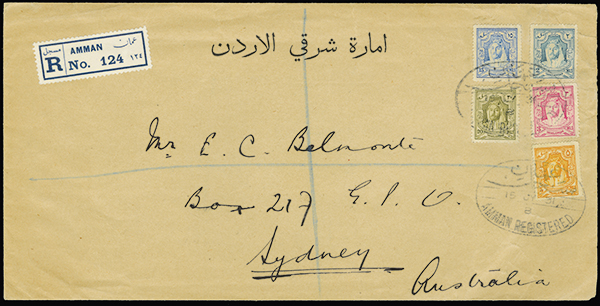 مسجل عمان
AMMAN
R No. 124 ١٢٤
امارة شرقي الاردن
Mr E. C. Belmonte
Box 217 G. P. O.
Sydney
Australia
AMMAN REGISTERED